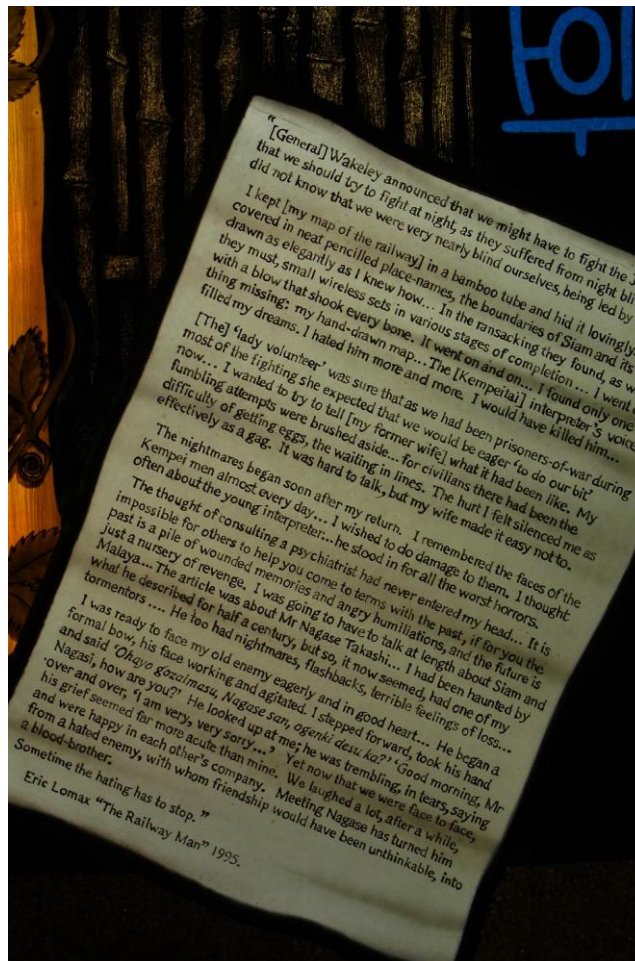 "
[General] Wakeley announced that we might have to fight the
that we should try to fight at night, as they suffered from night
did not know that we were very nearly blind ourselves, being led by
I kept [my map of the railway] in a bamboo tube and hid it lovingly.
covered in neat pencilled place-names, the boundaries of Siam and its
drawn as elegantly as I knew how... In the ransacking they found, as
they must, small wireless sets in various stages of completion... I went
with a blow that shook every bone. It went on and on... I found only one
thing missing: my hand-drawn map... The [Kempeitai] interpreter's voice
filled my dreams. I hated him more and more. I would have killed him...
[The] 'lady volunteer' was sure that as we had been prisoners-of-war during
most of the fighting she expected that we would be eager 'to do our bit'
now... I wanted to try to tell [my former wife] what it had been like. My
fumbling attempts were brushed aside... for civilians there had been the
difficulty of getting eggs, the waiting in lines. The hurt I felt silenced me as
effectively as a gag. It was hard to talk, but my wife made it easy not to.
The nightmares began soon after my return. I remembered the faces of the
Kempei men almost every day... I wished to do damage to them. I thought
often about the young interpreter...he stood in for all the worst horrors.
The thought of consulting a psychiatrist had never entered my head... It is
impossible for others to help you come to terms with the past, if for you the
past is a pile of wounded memories and angry humiliations, and the future is
just a nursery of revenge. I was going to have to talk at length about Siam and
Malaya... The article was about Mr Nagase Takashi... I had been haunted by
what he described for half a century, but so, it now seemed, had one of my
tormentors .... He too had nightmares, flashbacks, terrible feelings of loss...
I was ready to face my old enemy eagerly and in good heart... He began a
formal bow, his face working and agitated. I stepped forward, took his hand
and said 'Ohayo gozaimasu, Nagase san, ogenki desu ka?' 'Good morning, Mr
Nagasi, how are you?' He looked up at me; he was trembling, in tears, saying
'over and over, 'I am very, very sorry...' Yet now that we were face to face,
his grief seemed far more acute than mine. We laughed a lot, after a while,
and were happy in each other's company. Meeting Nagase has turned him
from a hated enemy, with whom friendship would have been unthinkable, into
a blood-brother.
Sometime the hating has to stop. "
Eric Lomax "The Railway Man" 1995.